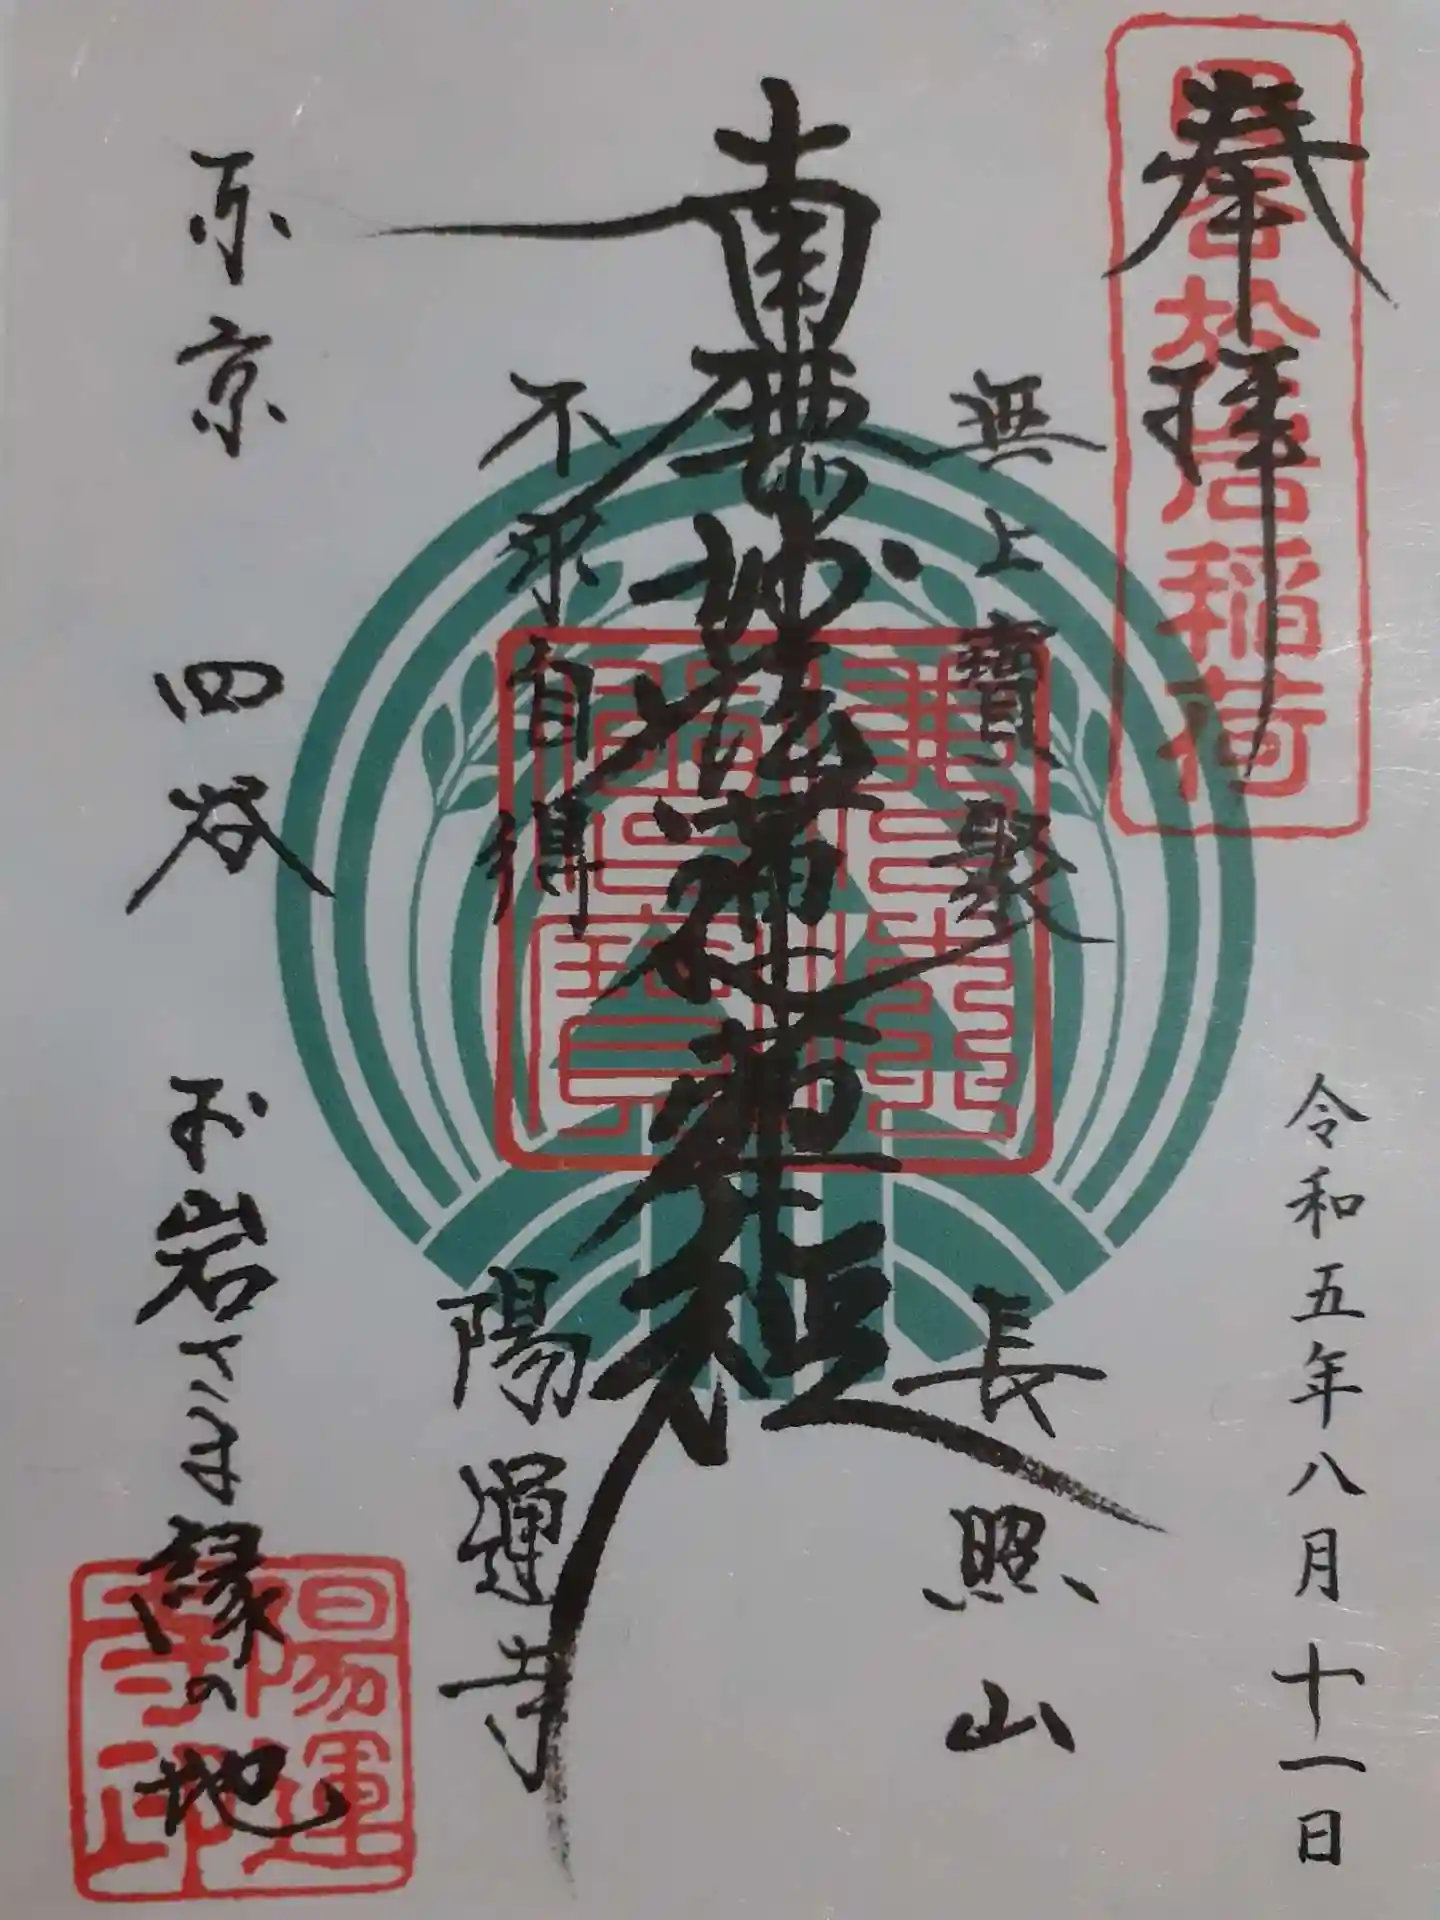 奉拝
令和五年八月十一日
無上寳聚
長照山
南無妙法蓮華経
不求自得
陽運寺
東京 四谷 於岩さま縁の地
於岩稲荷
陽運
寺印